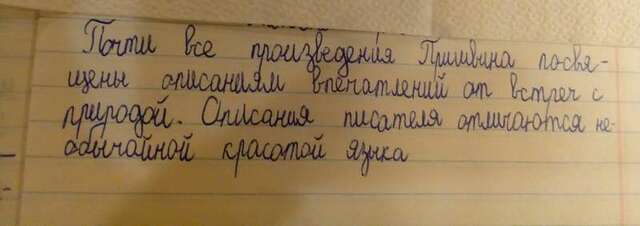 Почти все произведения Пришвина посвя-
щены описаниям впечатлений от встреч с
природой. Описания писателя отличаются не-
обычайной красотой языка